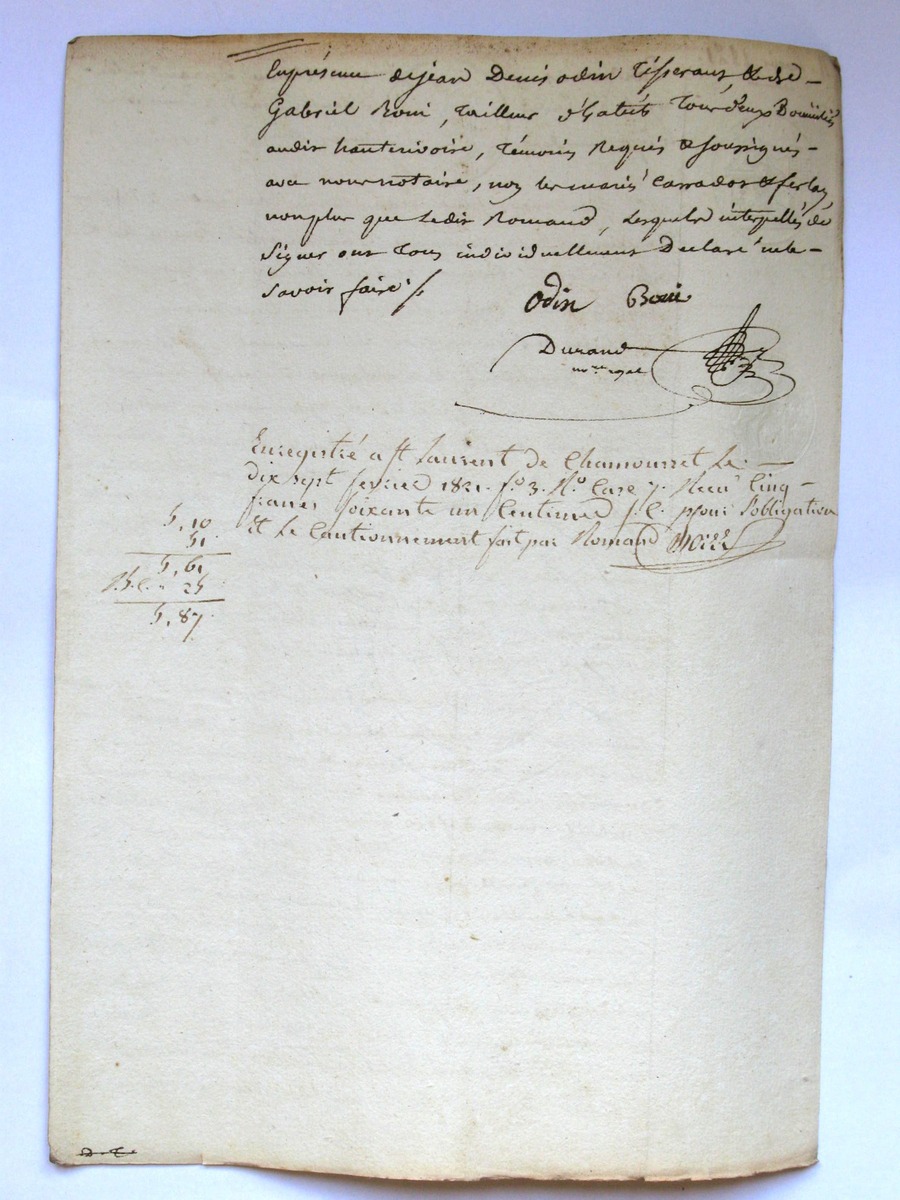 En présence de jean Denis odin Tisserant, & de
Gabriel Boni, Tailleur d'habits Tous deux Domiciliés
audit hauterivoire, témoins Requis & soussignés
avec nous notaire, non les mariés Carrador & ferlay,
non plus que ledit Romand, lesquels interpellés de
signer ont Tous individuellement Declaré ne le
savoir faire ./.
Odin Boni
Durand
Enregistré a St Laurent de Chamousset le
dix sept fevrier 1821. fo 3. Ro Case 7. Recu Cinq
francs soixante un Centimes s.c. pour l'obligation
Et le Cautionnement fait par Romand
5, 10
51
5, 61
25
5, 87